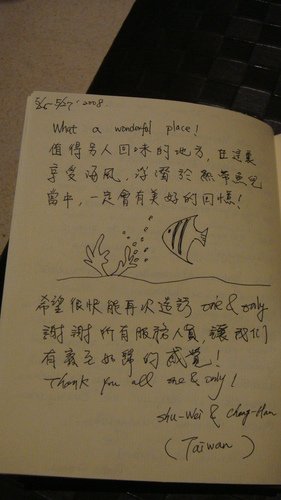 5/25-5/27, 2008.
What a wonderful place!
值得另人回味的地方, 在這裏
享受陽風, 浮潛於熱帶魚兒
當中, 一定會有美好的回憶!
希望很快能再次造訪 one & only
謝謝所有服務人員, 讓我們
有賓至如歸的感覺!
Thank you all one & only!
Shu-Wei & Cheng-Han
(Taiwan)